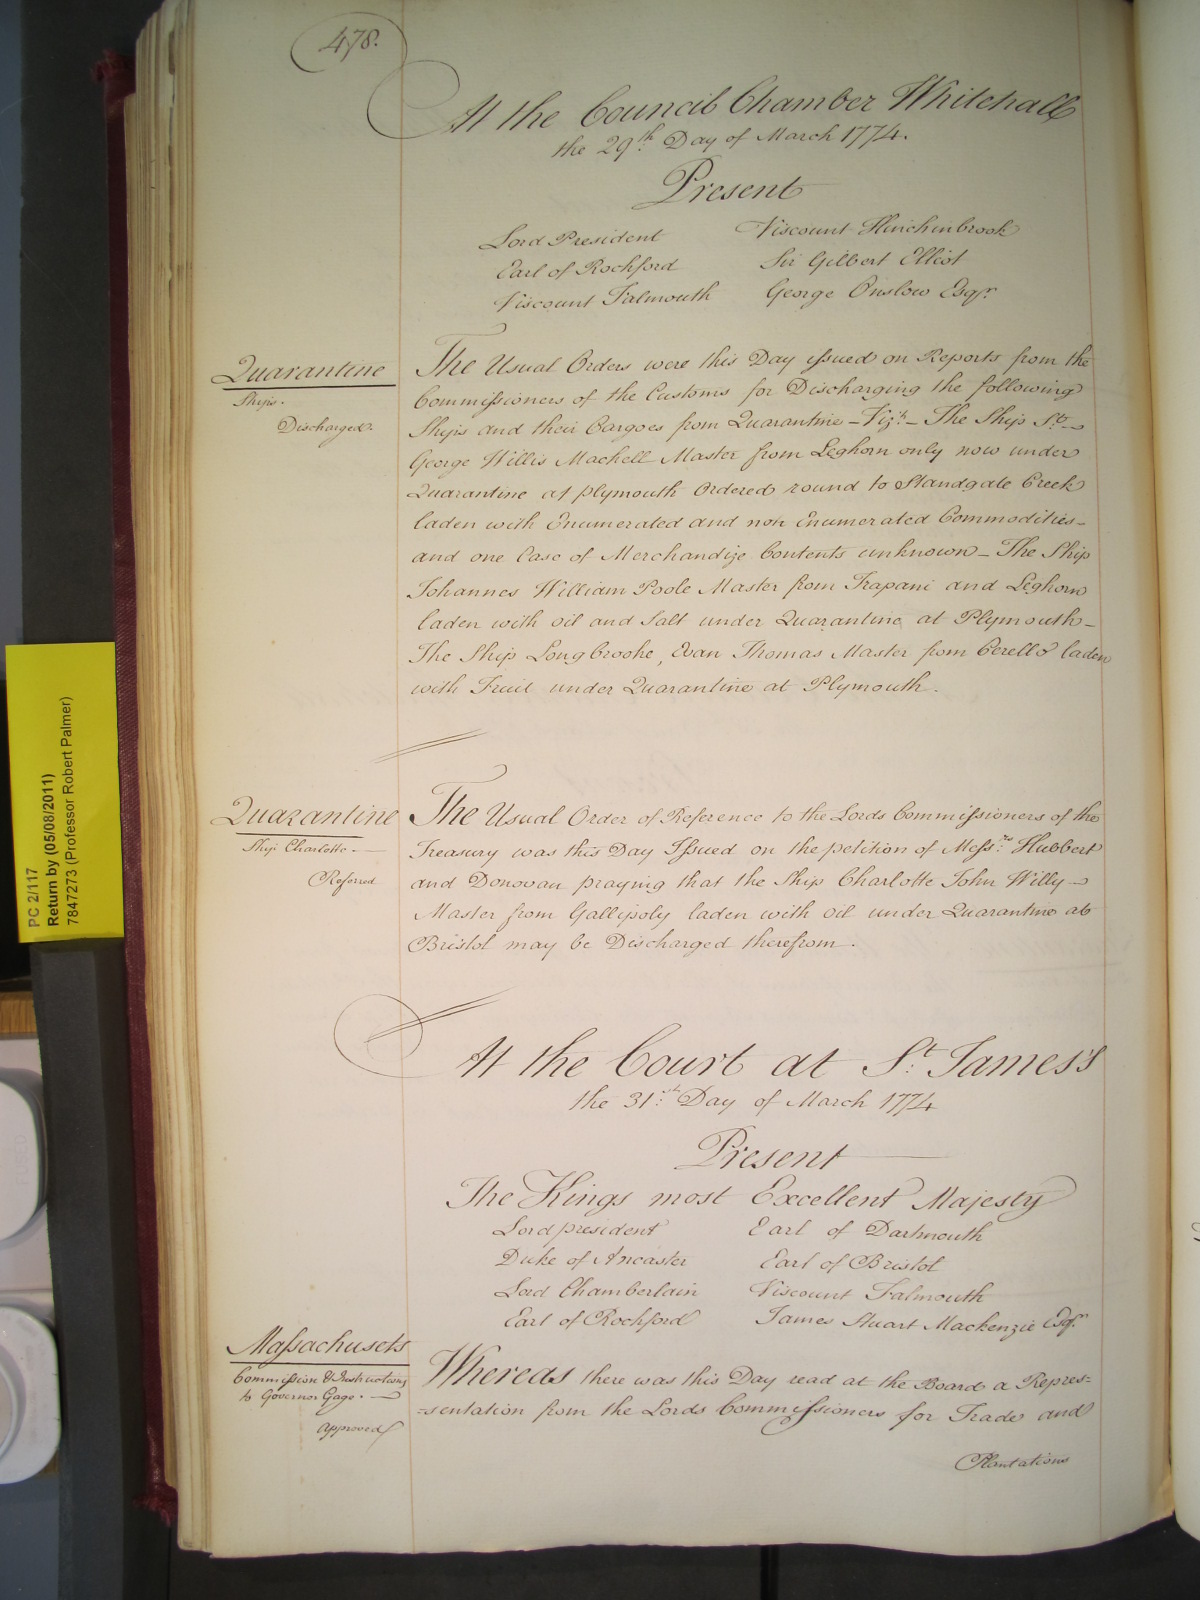 478.
At the Council Chamber Whitehall
the 29th Day of March 1774.
Present
Lord President Viscount Hinchinbrook
Earl of Rochford Sir Gilbert Elliot
Viscount Falmouth George Onslow Esqr.
Quarantine
Ships.
Discharged.
The Usual Orders were this Day issued on Reports from the
Commissioners of the Customs for Discharging the following
Ships and their Cargoes from Quarantine – Vizt. – The Ship St. –
George Willis Machell Master from Leghorn only now under
Quarantine at plymouth Ordered round to Standgate Creek
laden with Enumerated and non Enumerated Commodities –
and one Case of Merchandize Contents unknown – The Ship
Johannes William Poole Master from Trapani and Leghorn
laden with oil and Salt under Quarantine at Plymouth –
The Ship Longbrooke, Evan Thomas Master from Cerello laden
with Fruit under Quarantine at Plymouth.
Quarantine
Ship Charlotte. –
Referred
The Usual Order of Reference to the Lords Commissioners of the
Treasury was this Day Issued on the petition of Messrs. Hubbert
and Donovan praying that the Ship Charlotte John Willy –
Master from Gallipoly laden with oil under Quarantine at
Bristol may be Discharged therefrom.
At the Court at St. James's
the 31st. Day of March 1774
Present
The Kings most Excellent Majesty
Lord president Earl of Dartmouth
Duke of Ancaster Earl of Bristol
Lord Chamberlain Viscount Falmouth
Earl of Rochford James Stuart Mackenzie Esqr.
Massachusets
Commission & Instructions
to Governor Gage. –
approved
Whereas there was this Day read at the Board a Repres=
=sentation from the Lords Commissioners for Trade and
Plantations
PC 2/117
Return by (05/08/2011)
7847273 (Professor Robert Palmer)